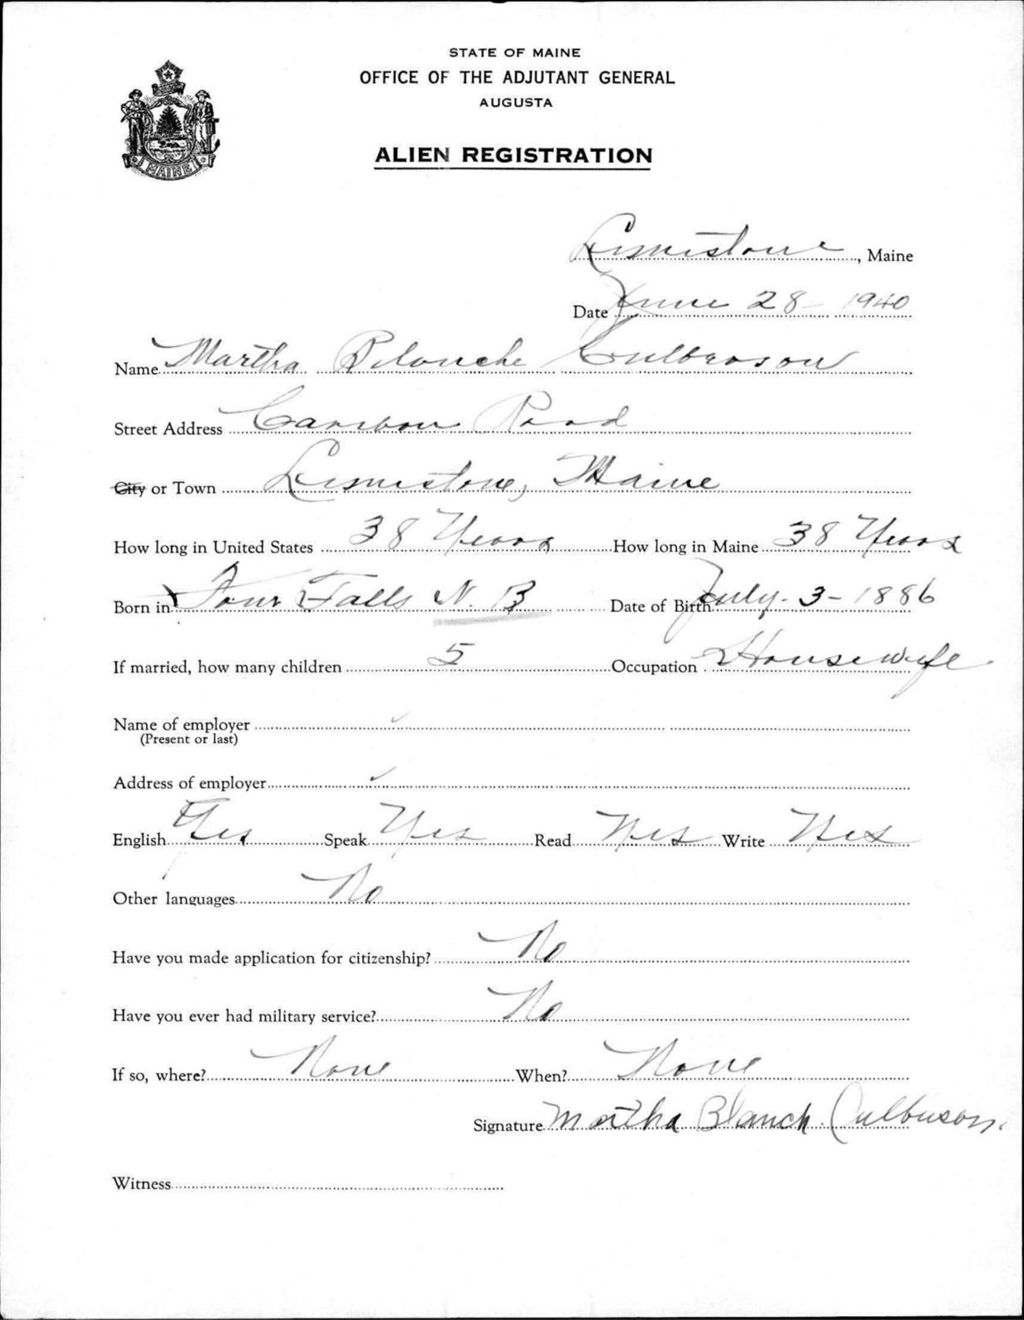 STATE OF MAINE
OFFICE OF THE ADJUTANT GENERAL
AUGUSTA
ALIEN REGISTRATION
MAINE
Limestone, Maine
Date June 28 - 1940
Name Martha Blanche Culberson
Street Address Caribou Road
City or Town Limestone, Maine
How long in United States 38 Years How long in Maine 38 Years
Born in Four Falls N. B Date of Birth July - 3 - 1886
If married, how many children 5 Occupation Housewife
Name of employer
(Present or last)
Address of employer
English Yes Speak Yes Read Yes Write Yes
Other languages No
Have you made application for citizenship? No
Have you ever had military service? No
If so, where? None When? None
Signature Martha Blanch. Culberson.
Witness